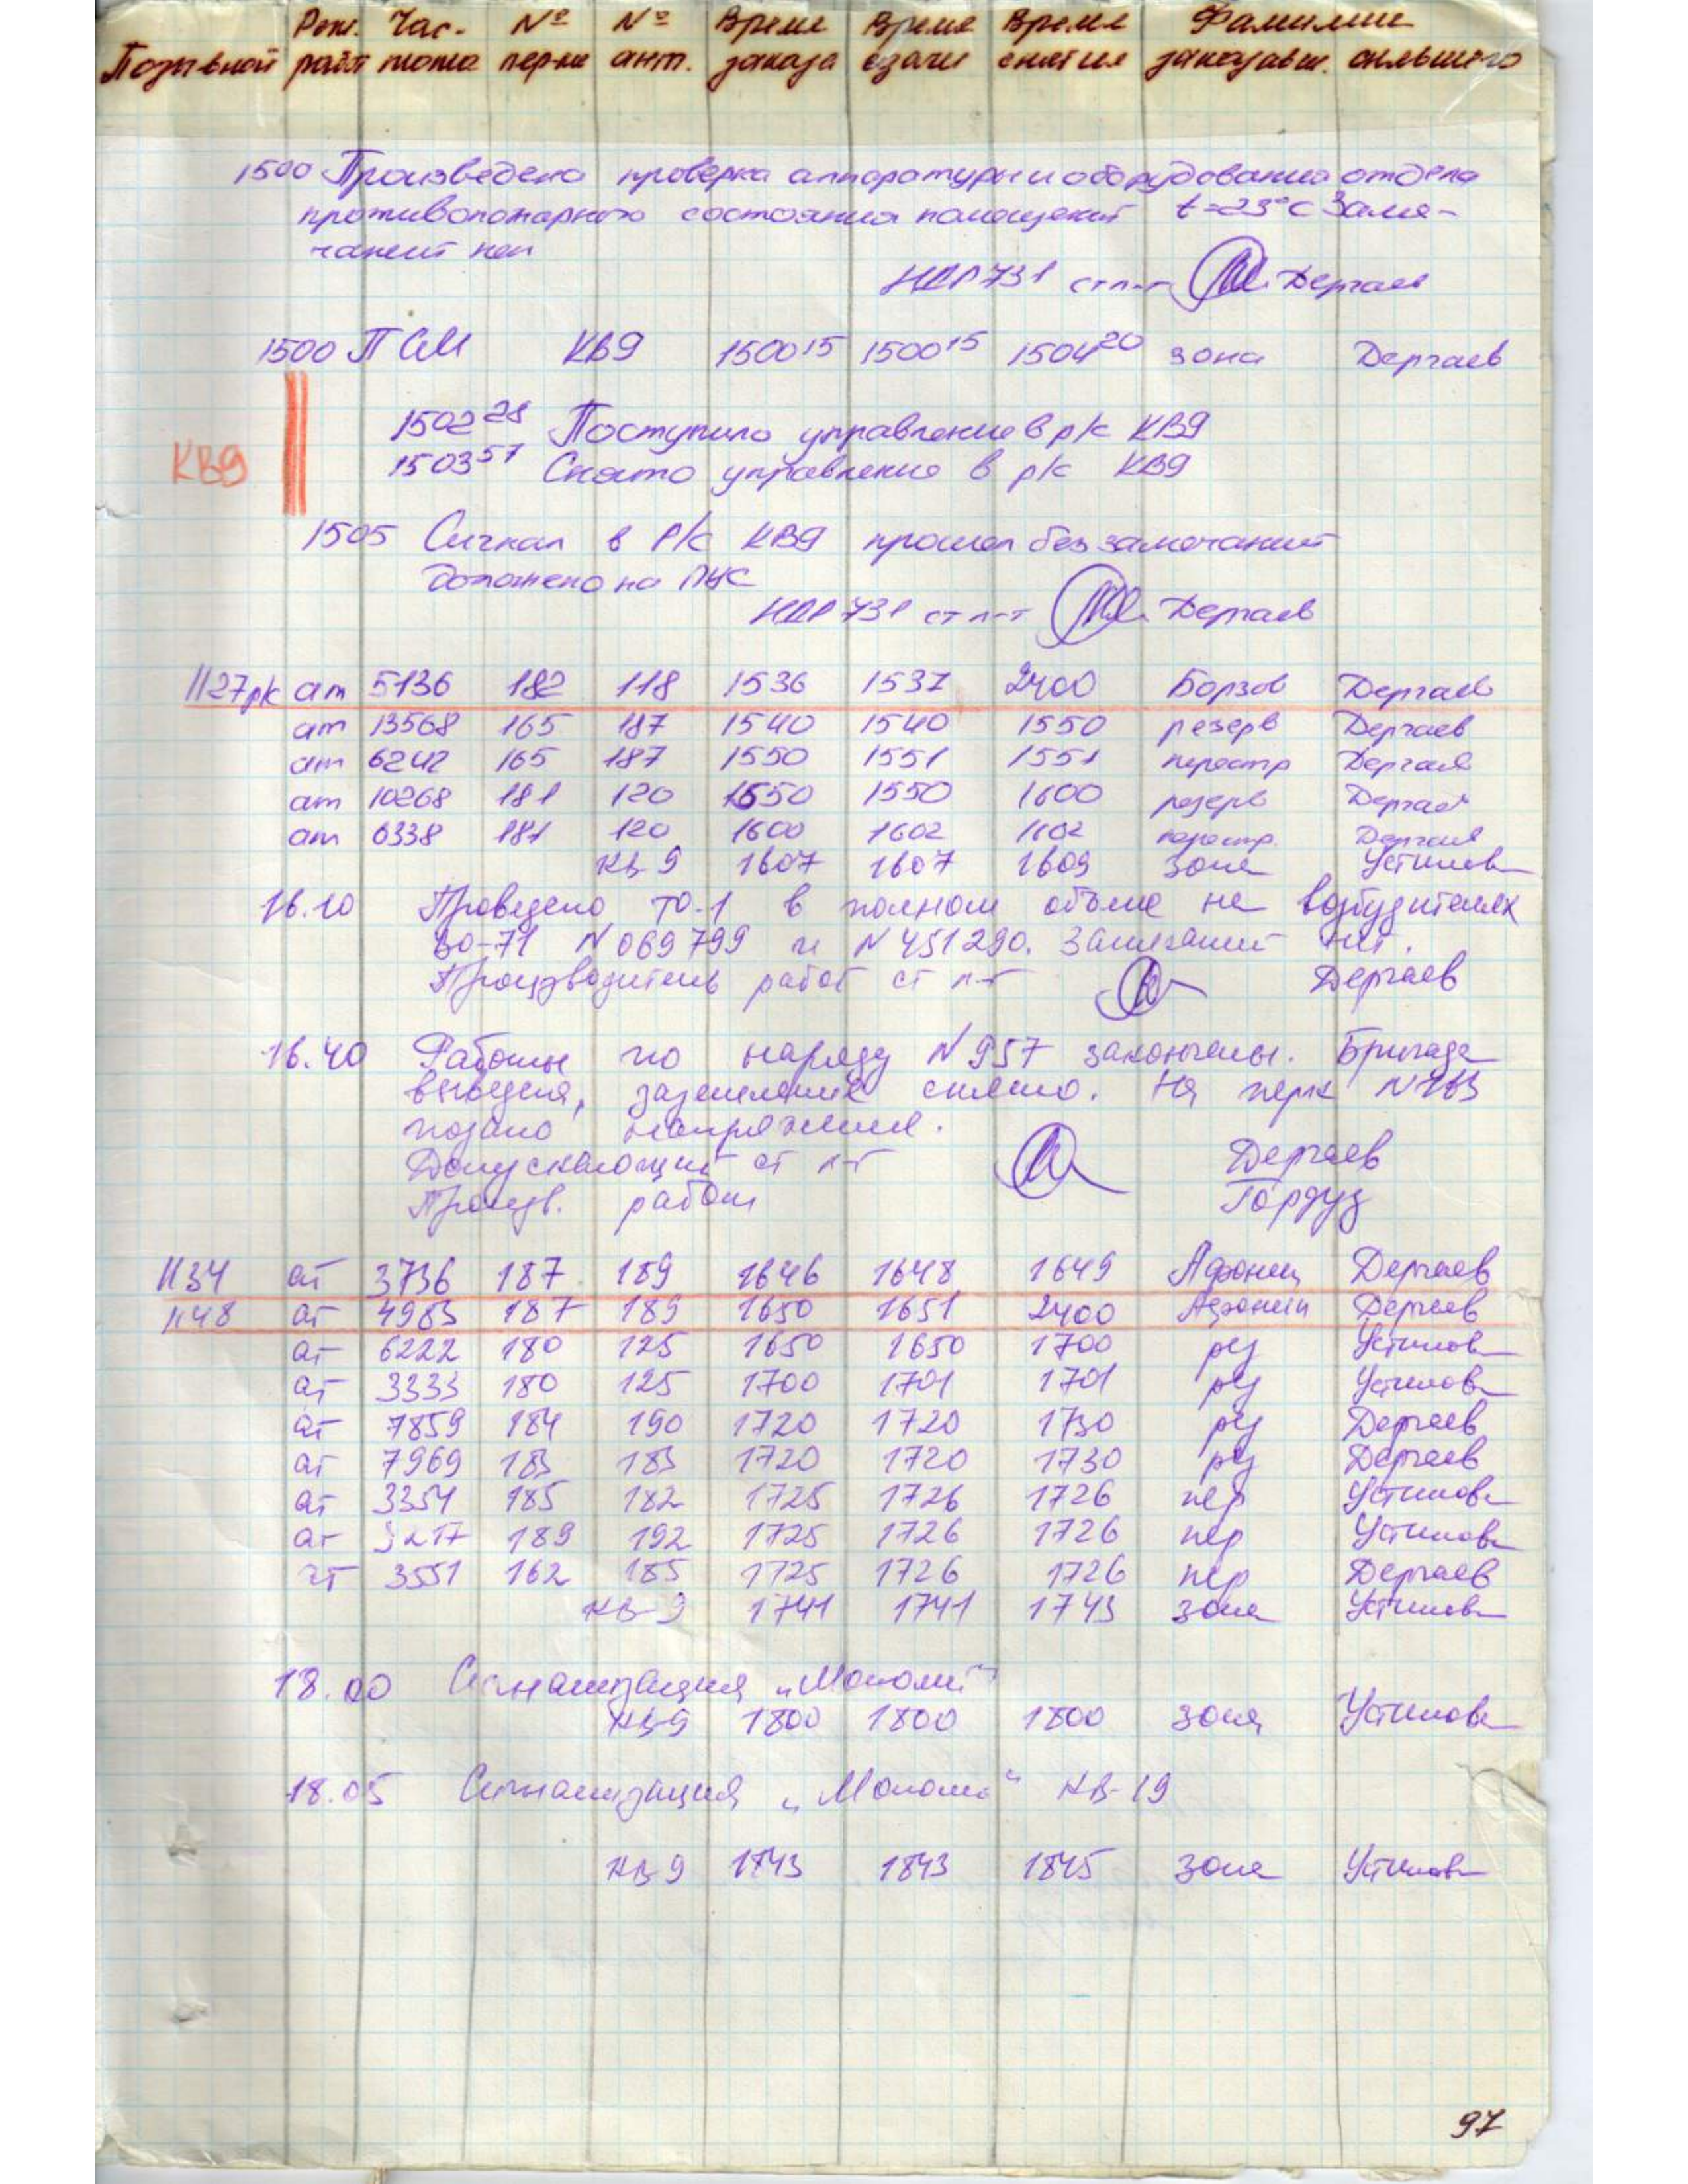 Реж. Час- № № Время Время Время Фамилии
Позывной работ тота пер-ка ант. заказа сдачи снятия заказавш. снявшего
1500 Произведена проверка аппаратуры и оборудования отдела
противопожарного состояния помещений t=23°C Заме-
чаний нет
НДР 731 ст л-т Дергаев
1500 ПСМ КВ9 1500 15 1500 15 1504 20 зона Дергаев
1502 28 Поступило управление в р/к КВ9
КВ9 1503 57 Снято управление в р/к КВ9
1505 Сигнал в р/к КВ9 прошел без замечаний
доложено на ПУС
НДР 731 ст л-т Дергаев
1127рк ат 5136 182 118 1536 1537 2400 Борзов Дергаев
ат 13568 165 187 1540 1540 1550 резерв Дергаев
ат 6242 165 187 1550 1551 1551 перестр Дергаев
ат 10268 181 120 1550 1550 1600 резерв Дергаев
ат 6338 181 120 1600 1602 1602 перестр. Дергаев
КВ-9 1607 1607 1609 зона Устинов
16.10 Проведено ТО-1 в полном объеме на возбудителях
ВО-71 N069799 и N451290. Замечаний нет.
Производитель работ ст л-т Дергаев
16.40 Работы по наряду N957 закончены. Бригада
выведена, заземление снято. На перк N163
подано напряжение.
Допускающий ст л-т Дергаев
Произв. работ
1134 ат 3736 187 189 1646 1648 1649 Афонин Дергаев
1148 ат 4983 187 189 1650 1651 2400 Афонин Дергаев
ат 6222 180 125 1650 1650 1700 рез Устинов
ат 3333 180 125 1700 1701 1701 рез Устинов
ат 7859 184 190 1720 1720 1730 рез Дергаев
ат 7969 183 183 1720 1720 1730 рез Дергаев
ат 3354 185 182 1725 1726 1726 пер Устинов
ат 3217 189 192 1725 1726 1726 пер Устинов
чт 3551 162 185 1725 1726 1726 пер Дергаев
КВ-9 1741 1741 1743 зона Устинов
18.00 Сигнализация
КВ-9 1800 1800 1800 зона Устинов
18.05 Сигнализация КВ-19
КВ-9 1843 1843 1845 зона Устинов
97